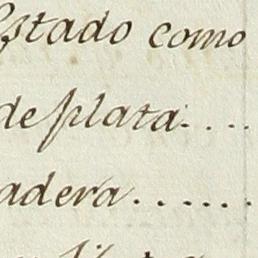 Estado como
de plata....
adera......